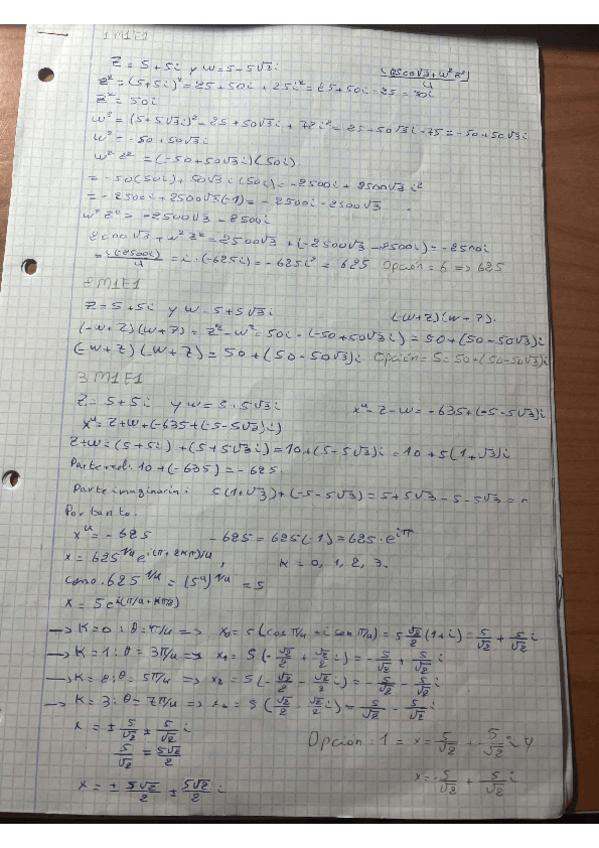 1 M1E1
Z = 5+5i y w = 5-5√3i
z² = (5+5i)² = 25+50i+25i² = 25+50i-25 = 50i
z² = 50i
w² = (5+5√3i)² = 25+50√3i + 75i² = 25-50√3i-75 = -50+50√3i
w² = -50+50√3i
w² z² = (-50+50√3i)(50i)
= -50(50i)+50√3i(50i) = -2500i + 2500√3i²
= -2500i + 2500√3(-1) = -2500i-2500√3
w² z² = -2500√3 - 2500i
2500√3 + w² z² = 2500√3 + (-2500√3-2500i) = -2500i
= i(2500i)/4 = i·(-625i) = -625i² = 625 Opción = 6 => 625
2 M1E1
Z = 5+5i y w = 5+5√3i (-w+z)(w+z).
(-w+z)(w+z) = z²-w² = 50i-(-50+50√3i) = 50+(50-50√3)i
(-w+z)(-w+z) = 50+(50-50√3)i Opción = 5 = 50+(50-50√3)i
3 M1E1
Z = 5+5i y w = 5+5√3i x⁴-z-w = -635+(-5-5√3)i
x⁴ = z+w+(-635+(-5-5√3)i)
z+w = (5+5i)+(5+5√3i) = 10+(5-5√3)i = 10+5(1+√3)i
Parte real: 10+(-635) = -625.
Parte imaginaria: 5(1+√3)+(-5-5√3) = 5+5√3-5-5√3 = 0
Por tanto.
x⁴ = -625 -625 = 625(-1) = 625·e^(iπ)
x = 625^(1/4) e^(i(π+2kπ)/4), k = 0, 1, 2, 3.
Como 625^(1/4) = (5⁴)^(1/4) = 5
x = 5e^(i(π/4+kπ/2))
→ K=0: θ=π/4 => x₀ = 5(cos π/4 + i sen π/4) = 5 √2/2 (1+i) = 5/√2 + 5/√2 i
→ K=1: θ=3π/4 => x₁ = 5(-√2/2 + √2/2 i) = -5/√2 + 5/√2 i
→ K=2: θ=5π/4 => x₂ = 5(-√2/2 - √2/2 i) = -5/√2 - 5/√2 i
→ K=3: θ=7π/4 => x₃ = 5(√2/2 - √2/2 i) = 5/√2 - 5/√2 i
x = ± 5/√2 ± 5/√2 i
Opción: 1 = x = 5/√2 + -5/√2 i y
5/√2 = 5√2/2
x = -5/√2 + 5/√2 i
x = ± 5√2/2 ± 5√2/2 i